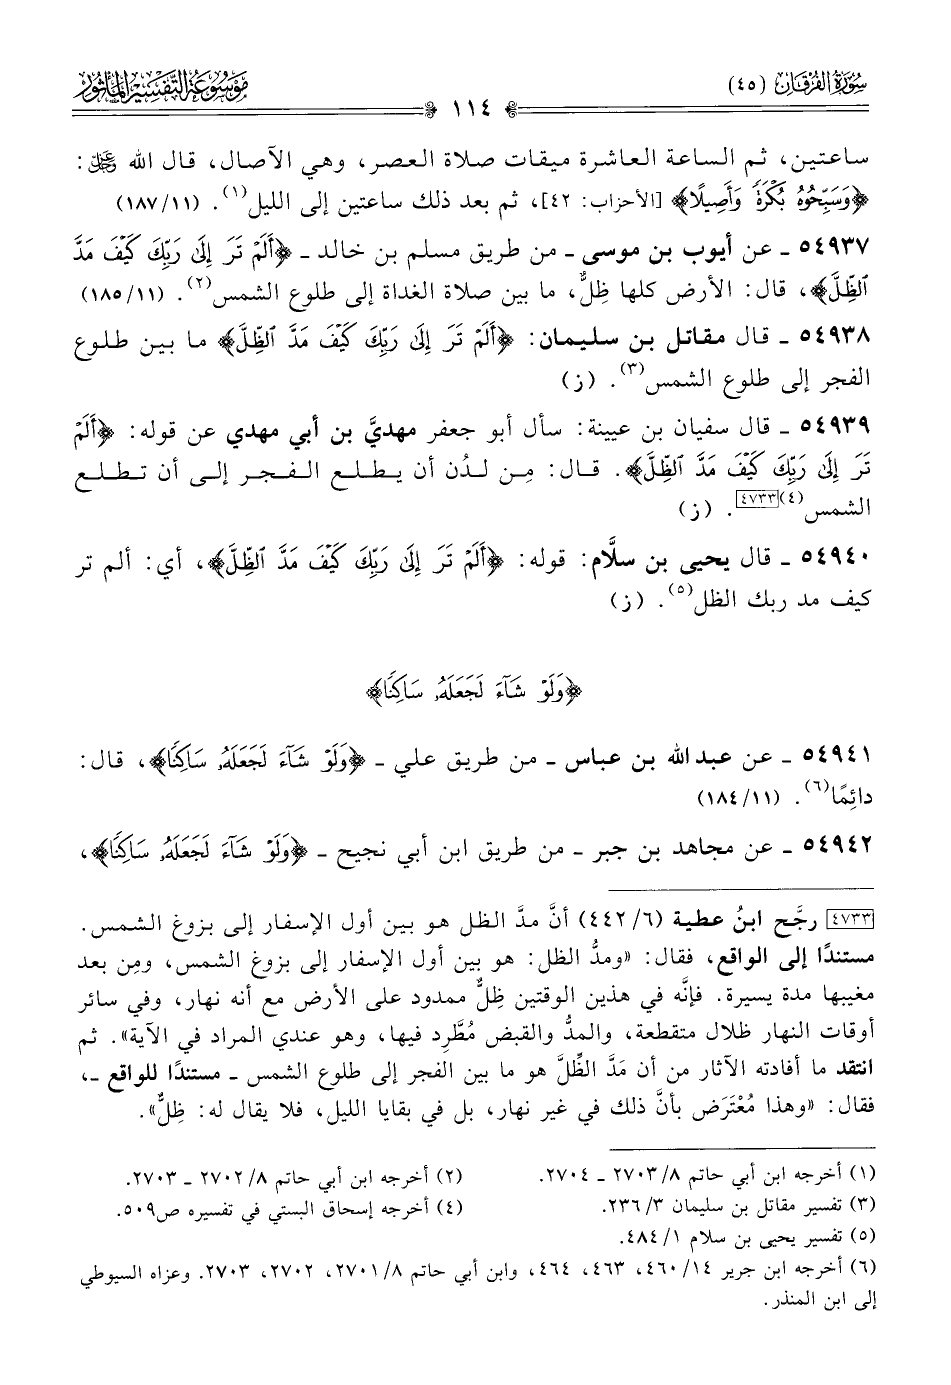 سُورَةُ الفُرْقَانِ (٤٥)
موسوعة التفسير المأثور
١١٤
ساعتين، ثم الساعة العاشرة ميقات صلاة العصر، وهي الآصال، قال الله ﷻ:
﴿وَسَبِّحُوهُ بُكْرَةً وَأَصِيلًا﴾ [الأحزاب: ٤٢]، ثم بعد ذلك ساعتين إلى الليل(١). (١١/ ١٨٧)
٥٤٩٣٧ ـ عن أيوب بن موسى ـ من طريق مسلم بن خالد ـ ﴿أَلَمْ تَرَ إِلَىٰ رَبِّكَ كَيْفَ مَدَّ
ٱلظِّلَّ﴾، قال: الأرض كلها ظِلٌّ، ما بين صلاة الغداة إلى طلوع الشمس(٢). (١١/ ١٨٥)
٥٤٩٣٨ ـ قال مقاتل بن سليمان: ﴿أَلَمْ تَرَ إِلَىٰ رَبِّكَ كَيْفَ مَدَّ ٱلظِّلَّ﴾ ما بين طلوع
الفجر إلى طلوع الشمس(٣). (ز)
٥٤٩٣٩ ـ قال سفيان بن عيينة: سأل أبو جعفر مهديَّ بن أبي مهدي عن قوله: ﴿أَلَمْ
تَرَ إِلَىٰ رَبِّكَ كَيْفَ مَدَّ ٱلظِّلَّ﴾. قال: مِن لدُن أن يطلع الفجر إلى أن تطلع
الشمس(٤)[٤٧٣٣]. (ز)
٥٤٩٤٠ ـ قال يحيى بن سلَّام: قوله: ﴿أَلَمْ تَرَ إِلَىٰ رَبِّكَ كَيْفَ مَدَّ ٱلظِّلَّ﴾، أي: ألم تر
كيف مد ربك الظل(٥). (ز)
﴿وَلَوْ شَآءَ لَجَعَلَهُۥ سَاكِنًا﴾
٥٤٩٤١ ـ عن عبد الله بن عباس ـ من طريق علي ـ ﴿وَلَوْ شَآءَ لَجَعَلَهُۥ سَاكِنًا﴾، قال:
دائِمًا(٦). (١١/ ١٨٤)
٥٤٩٤٢ ـ عن مجاهد بن جبر ـ من طريق ابن أبي نجيح ـ ﴿وَلَوْ شَآءَ لَجَعَلَهُۥ سَاكِنًا﴾،
[٤٧٣٣] رجَّح ابنُ عطية (٦/ ٤٤٢) أنَّ مدَّ الظل هو بين أول الإسفار إلى بزوغ الشمس.
مستندًا إلى الواقع، فقال: «ومدُّ الظل: هو بين أول الإسفار إلى بزوغ الشمس، ومِن بعد
مغيبها مدة يسيرة. فإنَّه في هذين الوقتين ظِلٌّ ممدود على الأرض مع أنه نهار، وفي سائر
أوقات النهار ظلال متقطعة، والمدُّ والقبض مُطَّرِد فيها، وهو عندي المراد في الآية». ثم
انتقد ما أفادته الآثار من أن مَدَّ الظِّلَّ هو ما بين الفجر إلى طلوع الشمس ـ مستندًا للواقع ـ،
فقال: «وهذا مُعْتَرَض بأنَّ ذلك في غير نهار، بل في بقايا الليل، فلا يقال له: ظِلٌّ».
(١) أخرجه ابن أبي حاتم ٨/ ٢٧٠٣ ـ ٢٧٠٤.
(٢) أخرجه ابن أبي حاتم ٨/ ٢٧٠٢ ـ ٢٧٠٣.
(٣) تفسير مقاتل بن سليمان ٣/ ٢٣٦.
(٤) أخرجه إسحاق البستي في تفسيره ص٥٠٩.
(٥) تفسير يحيى بن سلام ١/ ٤٨٤.
(٦) أخرجه ابن جرير ١٤/ ٤٦٠، ٤٦٣، ٤٦٤، وابن أبي حاتم ٨/ ٢٧٠١، ٢٧٠٢، ٢٧٠٣. وعزاه السيوطي
إلى ابن المنذر.